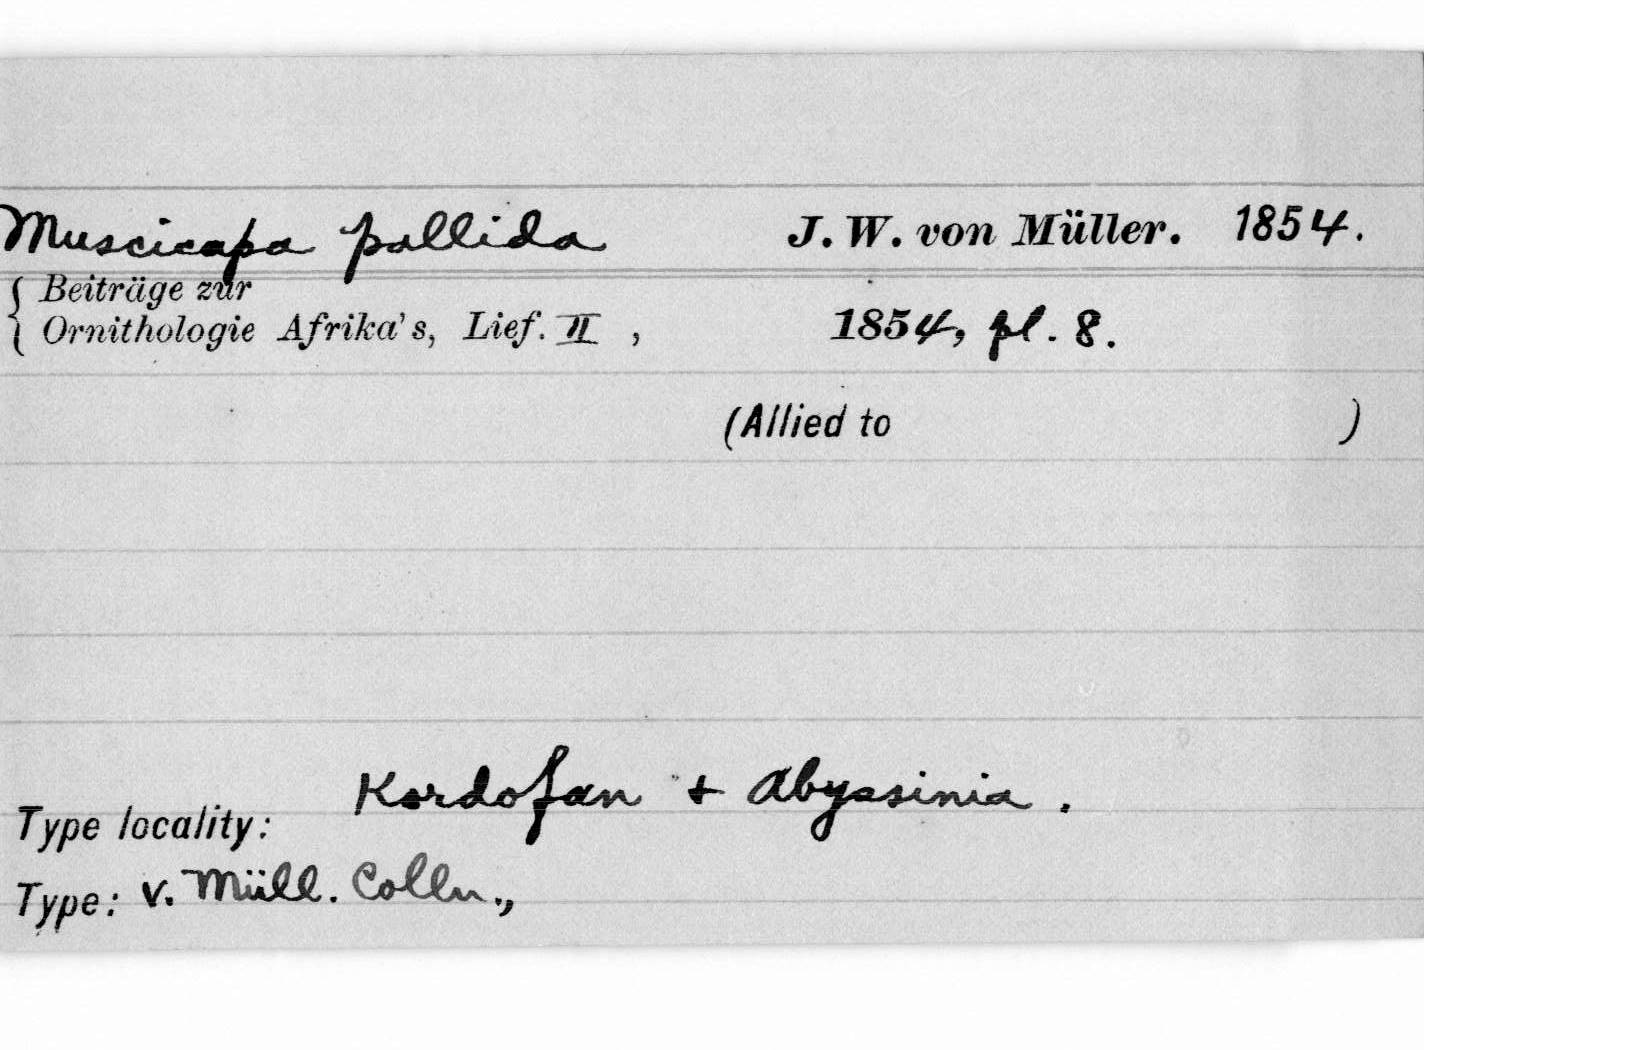 Muscicapa pallida J. W. von Müller. 1854.
{ Beiträge zur
Ornithologie Afrika's, Lief. II , 1854, pl. 8.
(Allied to )
Kordofan + Abyssinia .
Type locality:
Type: v. Müll. Colln.,